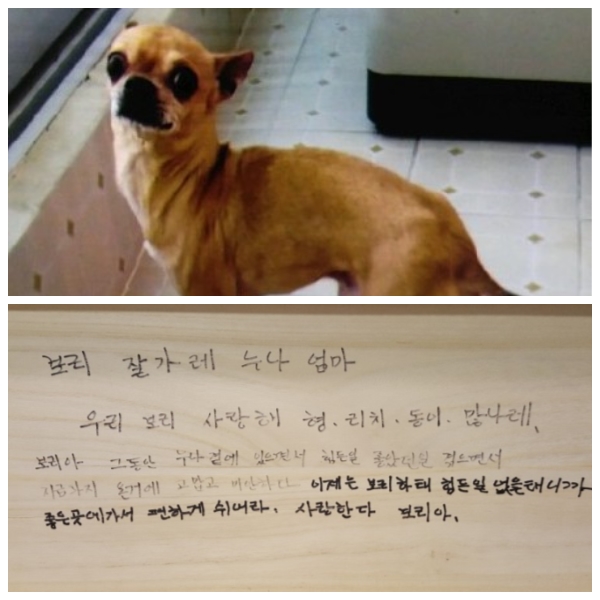 보리 잘가레 누나 엄마
우리 보리 사랑해 형.리치.동이.많나레.
보리아 그동안 누나곁에 있으면서 힘든일 겪으면서
지금까지 고맙고 미안하다 이제는 보리하테 힘든일 없을태니까
좋은곳에가서 편하게 쉬어라. 사랑한다 보리아.